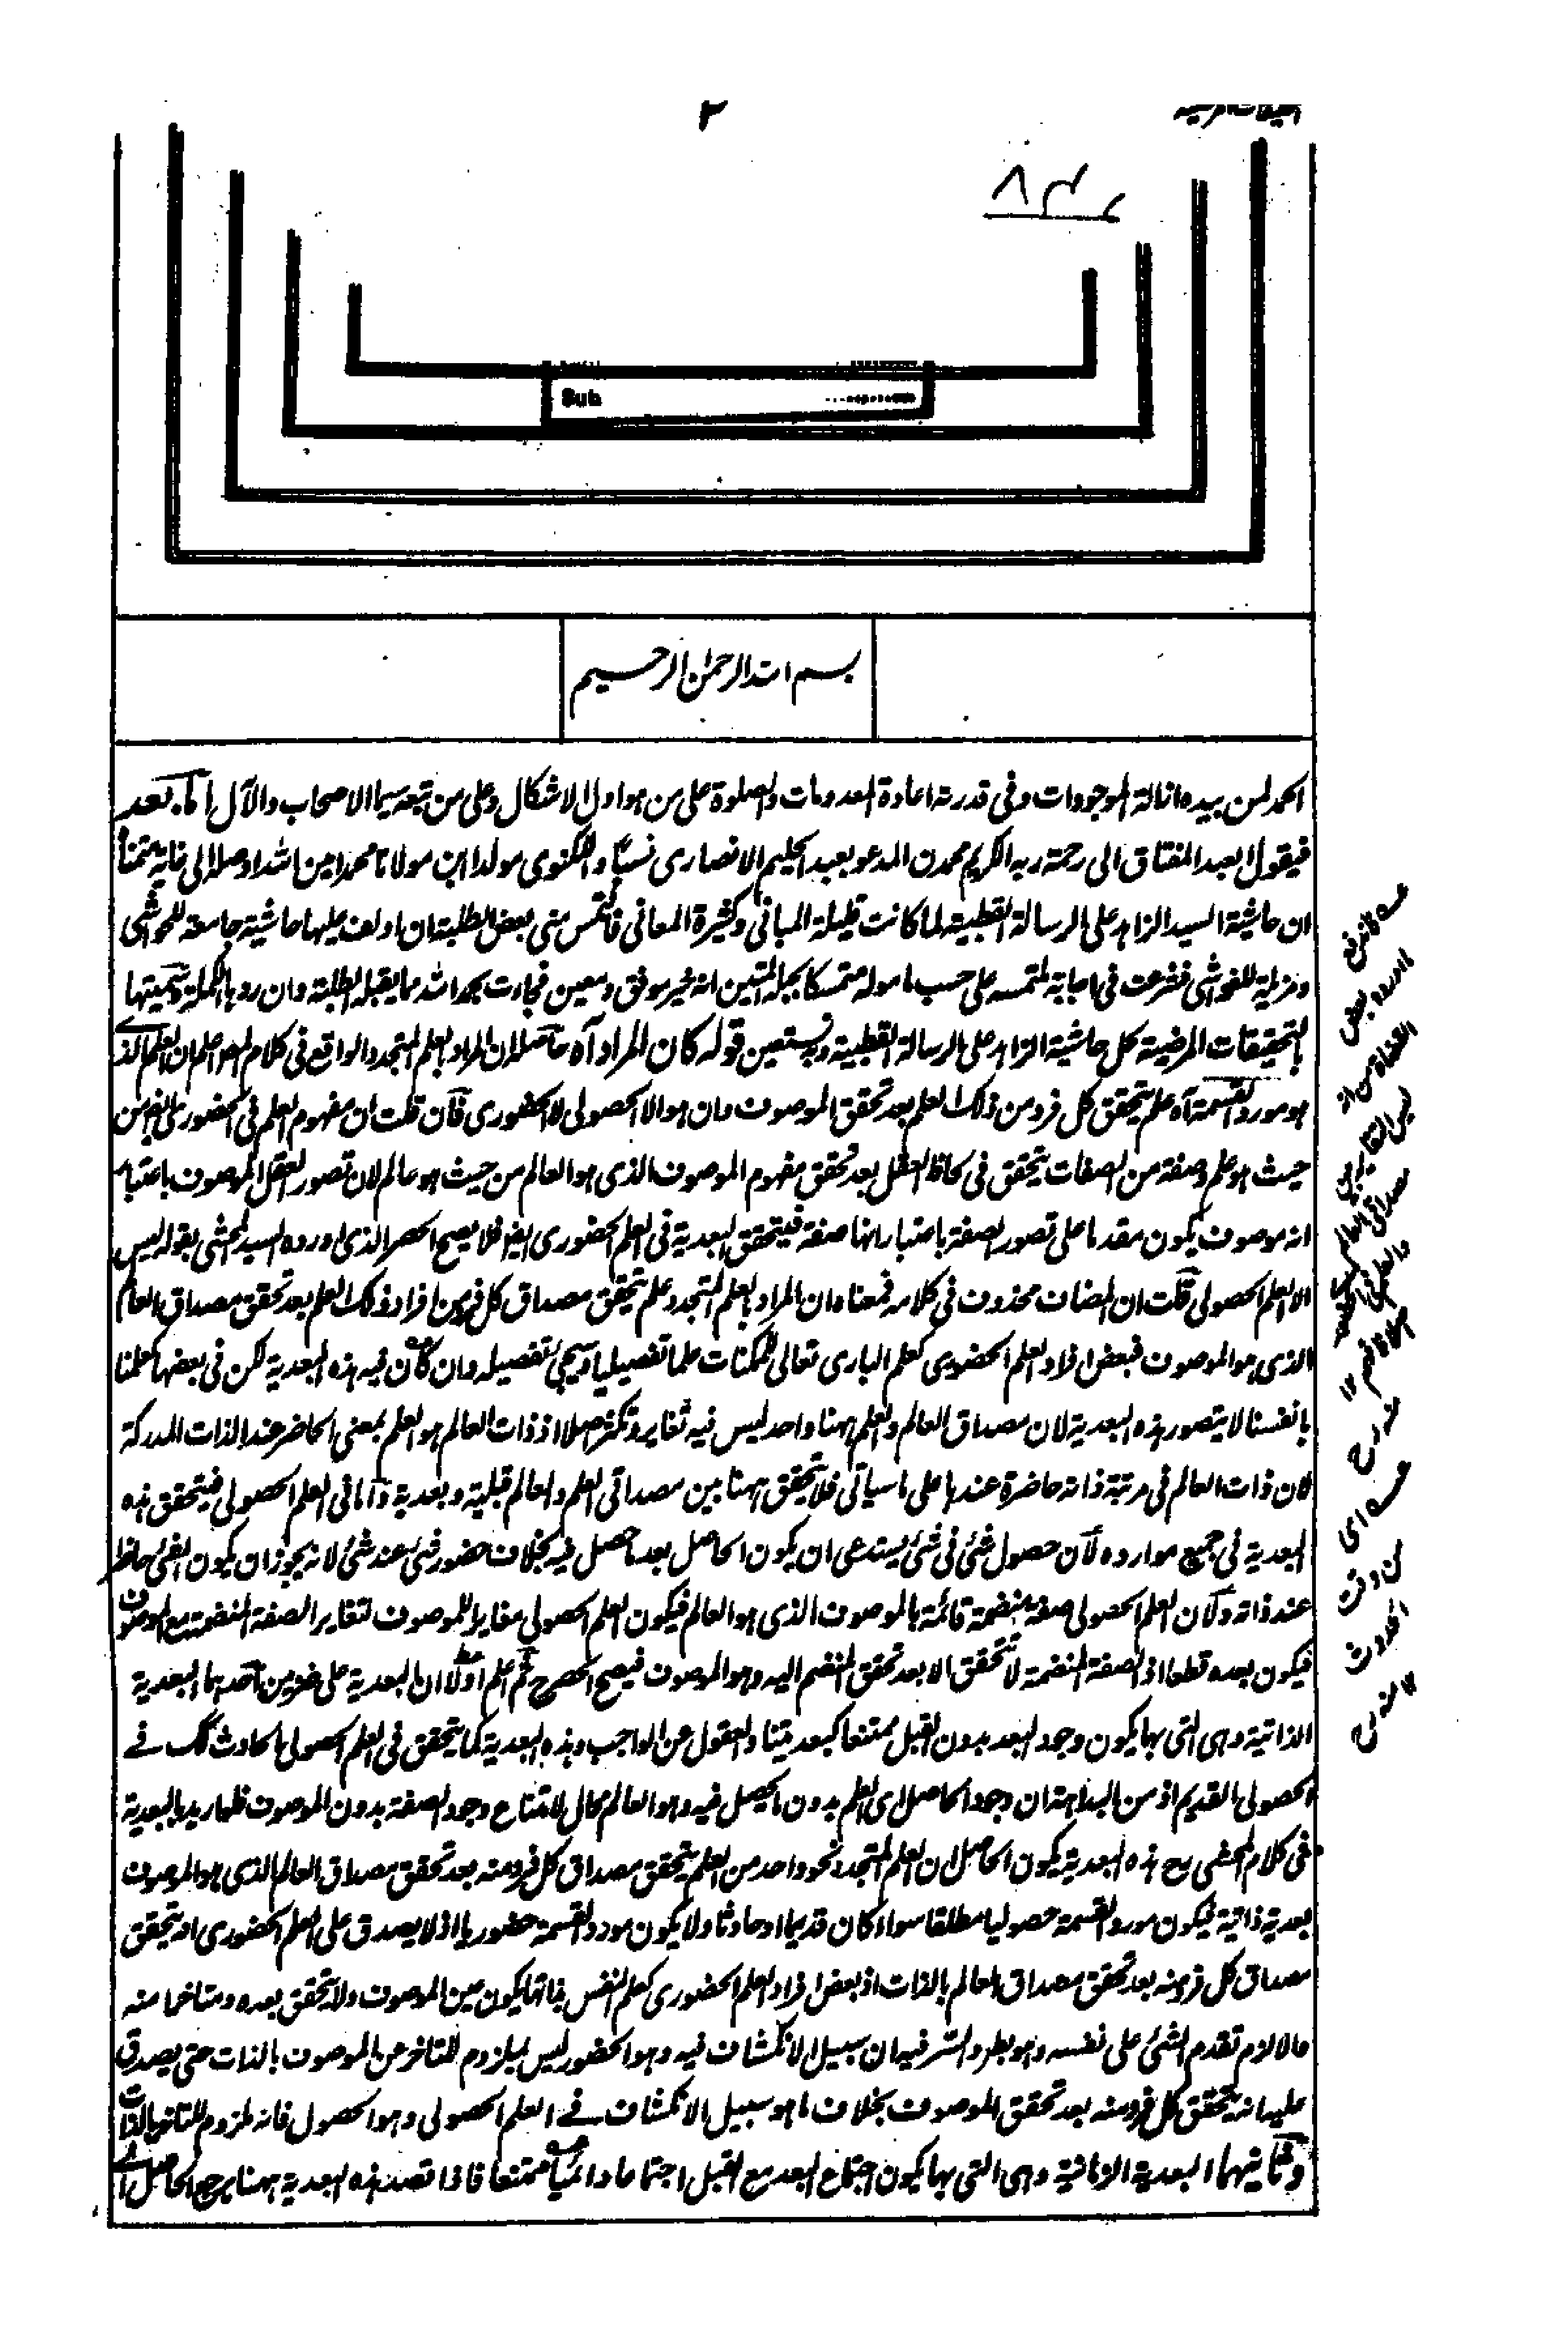 ٢
٨٣٤
Sub
بسم الله الرحمن الرحيم
الحمد لمن بيده انالة الموجودات وفى قدرته اعادة المعدومات والصلوة على من هو اول الاشكال وعلى من تبعه سيما الاصحاب والآل اما بعد
فيقول العبد المفتاق الى رحمة ربه الكريم محمدن المدعو بعبد الحليم الانصارى نسبًا واللكنوى مولدا ابن مولانا محمد امين الله اوصله الى غاية متمناه
ان حاشية السيد الزاهد على الرسالة القطبية لما كانت قليلة المبانى وكثيرة المعانى فالتمس منى بعض الطلبة ان اولف عليها حاشية جامعة للحواشى
ومزيلة للغواشى فشرعت فى اجابة ملتمسه على حسب مأموله متمسكا بحبله المتين انه خير موفق ومعين فجاءت بحمد الله مما يقبله الطلبة وان رده الكملة وسميتها
بالتحقيقات المرضية لحل حاشية الزاهد على الرسالة القطبية وبه نستعين قوله كان المراد آه حاصله ان المراد بالعلم المتجدد الواقع فى كلام المصـ اعلم ان العلم الذى
هو مورد القسمة آه علم يتحقق كل فرد من ذلك العلم بعد تحقق الموصوف وان هو الا الحصولى لا الحضورى فان قلت ان مفهوم العلم فى الحضورى ايضا من
حيث هو علم وصفة من الصفات يتحقق فى لحاظ العقل بعد تحقق مفهوم الموصوف الذى هو العالم من حيث هو عالم لان تصور العقل الموصوف باعتبار
انه موصوف يكون مقدما على تصور الصفة باعتبار انها صفة فيتحقق البعدية فى العلم الحضورى ايضا فلا يصح الحصر الذى اورده السيد المحشى بقوله ليس
الا العلم الحصولى قلت ان المضاف محذوف فى كلامه فمعناه ان المراد بالعلم المتجدد علم يتحقق مصداق كل فرد من افراد ذلك العلم بعد تحقق مصداق العالم
الذى هو الموصوف فبعض افراد العلم الحضورى كعلم البارى تعالى بالممكنات علما تفصيليا وسيجئ تفصيله وان كان فيه هذه البعدية لكن فى بعضها كعلمنا
بانفسنا لا يتصور هذه البعدية لان مصداق العالم والعلم ههنا واحد ليس فيه تغاير وتكثر اصلا اذ ذات العالم هو العلم بمعنى الحاضر عند الذات المدركة
لان ذات العالم فى مرتبة ذاته حاضرة عندها على ما سيأتى فلا يتحقق ههنا بين مصداقى العلم والعالم قبلية وبعدية واما فى العلم الحصولى فيتحقق هذه
البعدية فى جميع موارده لان حصول شئ فى شئ يستدعى ان يكون الحاصل بعد ما حصل فيه بخلاف حضور شئ عند شئ لانه يجوز ان يكون الشئ حاضرا
عند ذاته ولان العلم الحصولى صفة منضمة قائمة بالموصوف الذى هو العالم فيكون العلم الحصولى مغايرا للموصوف لتغاير الصفة المنضمة مع الموصوف
فيكون بعده قطعا اذ الصفة المنضمة لا تتحقق الا بعد تحقق المنضم اليه وهو الموصوف فيصح الحصر ح ثم اعلم اولًا ان البعدية على ضربين احدهما البعدية
الذاتية وهى التى بها يكون وجود البعد بدون القبل ممتنعا كبعديتنا والعقول عن الواجب وهذه البعدية كما يتحقق فى العلم الحصولى الحادث كك فى
الحصولى القديم اذ من البداهة ان وجود الحاصل اى العلم بدون ما يحصل فيه وهو العالم محال لامتناع وجود الصفة بدون الموصوف فلما اريد بالبعدية
فى كلام المحشى رح هذه البعدية يكون الحاصل ان العلم المتجدد نحو واحد من العلم يتحقق مصداق كل فرد منه بعد تحقق مصداق العالم الذى هو الموصوف
بعدية ذاتية فيكون مورد القسمة حصوليا مطلقا سواء كان قديما او حادثا ولا يكون مورد القسمة حضوريا اذ لا يصدق على العلم الحضورى انه يتحقق
مصداق كل فرد منه بعد تحقق مصداق العالم بالذات اذ بعض افراد العلم الحضورى كعلم النفس بذاتها يكون عين الموصوف ولا يتحقق بعده ومتاخرا منه
والا لزم تقدم الشئ على نفسه وهو بط والسر فيه ان سبيل الانكشاف فيه وهو الحضور ليس بملزوم للتاخر عن الموصوف بالذات حتى يصدق
عليه انه يتحقق كل فرد منه بعد تحقق الموصوف بخلاف ما هو سبيل الانكشاف فى العلم الحصولى وهو الحصول فانه ملزوم للتاخر بالذات
وثانيهما البعدية الزمانية وهى التى بها يكون اجتماع البعد مع القبل اجتماعا دائميا ممتنعا فاذا قصد هذه البعدية ههنا يرجع الحاصل الى